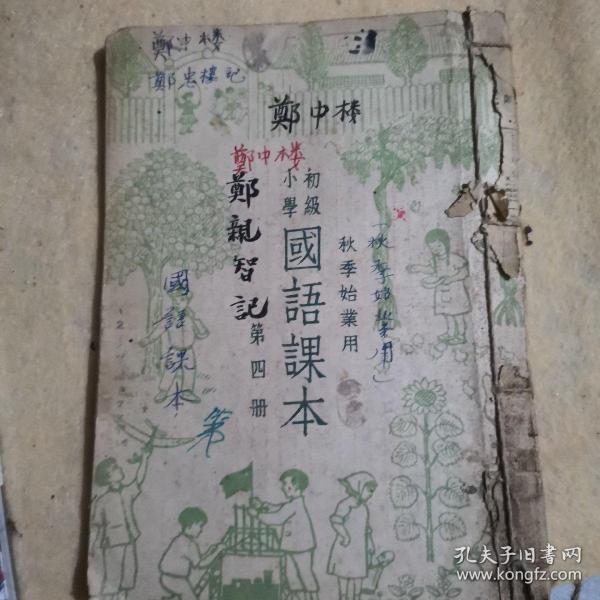 鄭中楼
鄭忠樓記
鄭中楼
鄭中楼
鄭親智記
初級
小學
國語課本
第四册
秋季始業用
(秋季始業用)
國語課本
第
孔夫子旧书网
www.kongfz.com